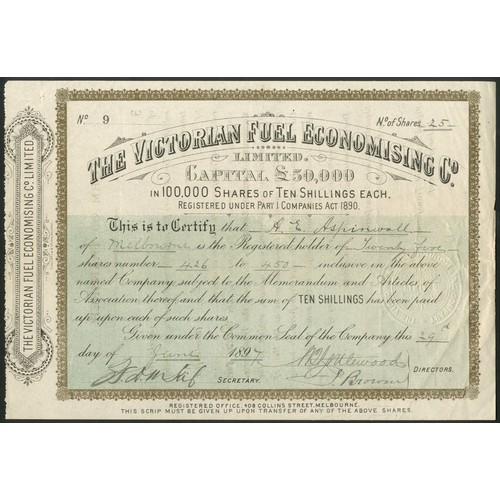 THE VICTORIAN FUEL ECONOMISING Co. LIMITED.
No 9
No. of Shares 25
THE VICTORIAN FUEL ECONOMISING Co.
LIMITED.
CAPITAL £50,000
IN 100,000 SHARES OF TEN SHILLINGS EACH.
REGISTERED UNDER PART I COMPANIES ACT 1890.
This is to Certify that A. E. Aspinwall
of Melbourne is the Registered holder of Twenty five
shares number 426 to 450 inclusive in the above
named Company subject to the Memorandum and Articles of
Association thereof and that the sum of TEN SHILLINGS has been paid
up upon each of such shares.
Given under the Common Seal of the Company this 29
day of June 1897
DIRECTORS.
J Browne
SECRETARY.
REGISTERED OFFICE, 408 COLLINS STREET, MELBOURNE.
THIS SCRIP MUST BE GIVEN UP UPON TRANSFER OF ANY OF THE ABOVE SHARES.